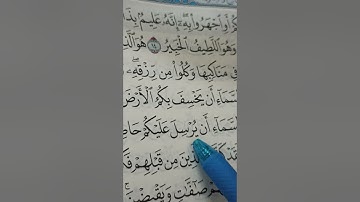 كُمْ أَوِ ٱجْهَرُوا۟ بِهِۦٓ إِنَّهُۥ عَلِيمٌۢ بِذَا
وَهُوَ ٱللَّطِيفُ ٱلْخَبِيرُ ١٤ هُوَ ٱلَّذِ
فِى مَنَاكِبِهَا وَكُلُوا۟ مِن رِّزْقِهِۦ
سَّمَآءِ أَن يَخْسِفَ بِكُمُ ٱلْأَرْضَ
سَّمَآءِ أَن يُرْسِلَ عَلَيْكُمْ حَاصِ
ٱلَّذِينَ مِن قَبْلِهِمْ فَكَ
صَٰٓفَّٰتٍ وَيَقْبِضْنَ